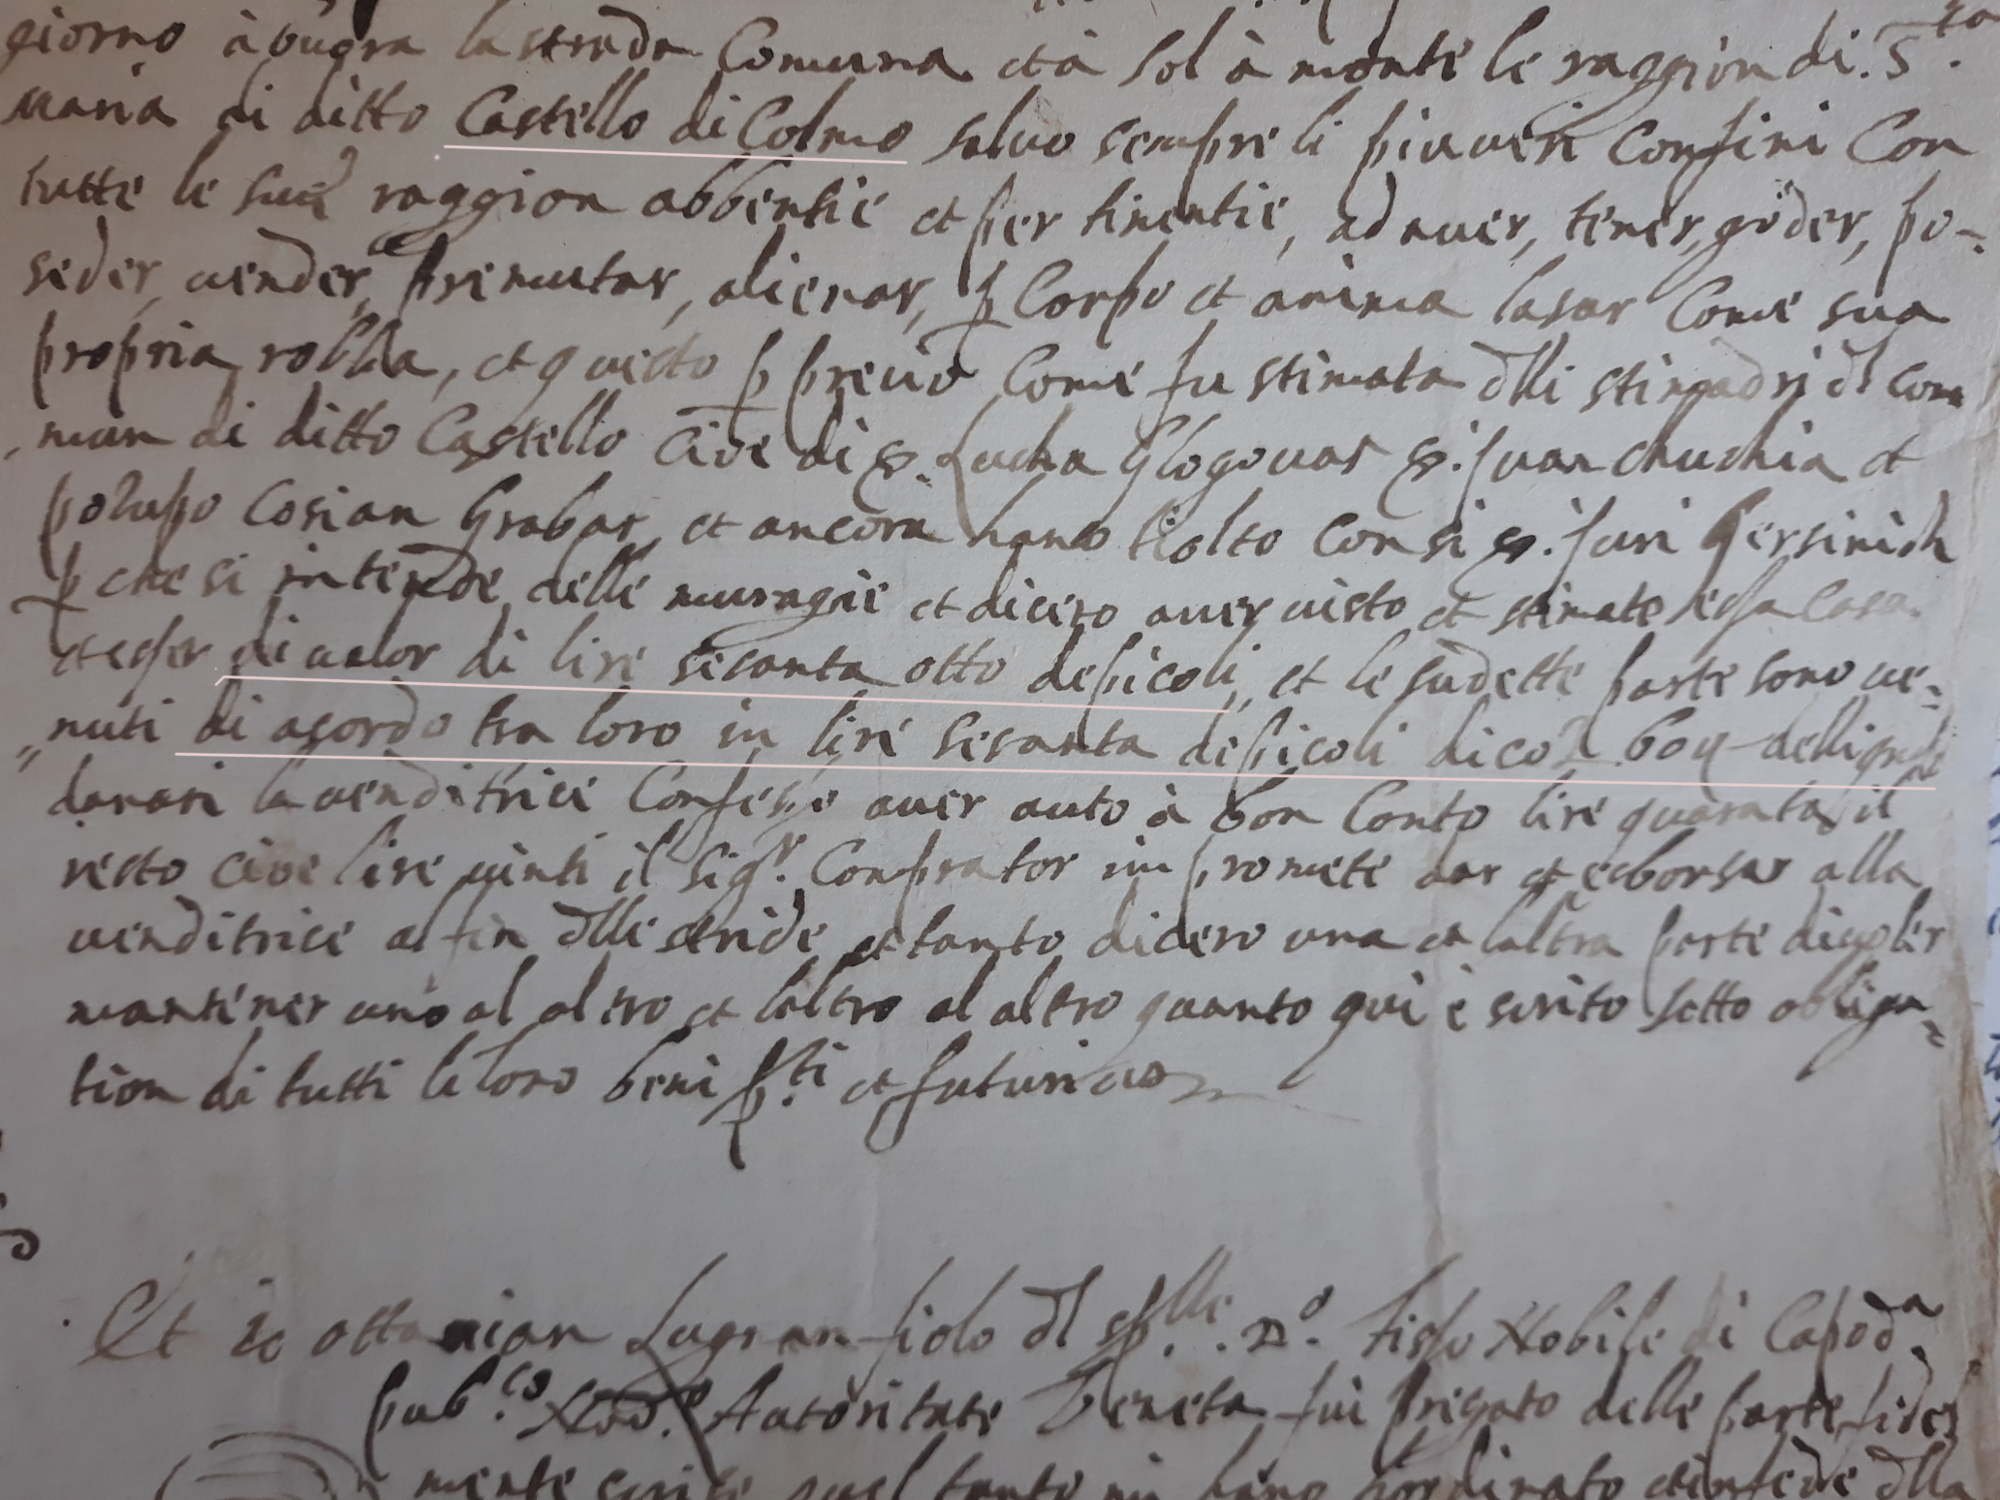 giorno à bugra la strada Comuna et à Sol à monte le raggion di S.ta
Maria di ditto Castello di Colmo saluo sempre li piu ueri Confini Con
tutte le sue raggion abbentie et per tinentie, ad auer, tener, goder, po-
seder, uender, premutar, alienar, p Corpo et anima lasar Come sua
propria robba, et questo p precio Come fu stimata dlli stimadri dl Com
mun di ditto Castello Cioe di s. Lucha Glogouar s. Juan chuchia et
polupo Cosian Grabar, et ancora hano tiolto Con si s. Juri Gersinich
p che si intende delle muragie et dicero auer uisto et stimato essa Casa
et esser di ualor di lire sesanta otto de picoli, et le sudette parte sono ue=
nuti di acordo tra loro in lire sesanta de picoli dico L 60 delli quali
danari la uenditrice Confesse auer auto à bon Conto lire quaranta il
resto Cioe lire uinti il Sigr. Comprator promete dar et esborsar alla
uenditrice al fin dlle stride et tanto dicero una et laltra parte di
mantener uno al altro et laltro al altro quanto qui è scrito sotto obliga=
tion di tutti le loro beni p.ti et futuri
Et io ottauian Lugnan fiolo dl sp.lle D.o Tisso Nobile di Capod.a
pub.co Nod.o Autoritate Veneta fui pregato delle parte fidel
mente scrise quel tanto mi hano hordinato et in fede dlla